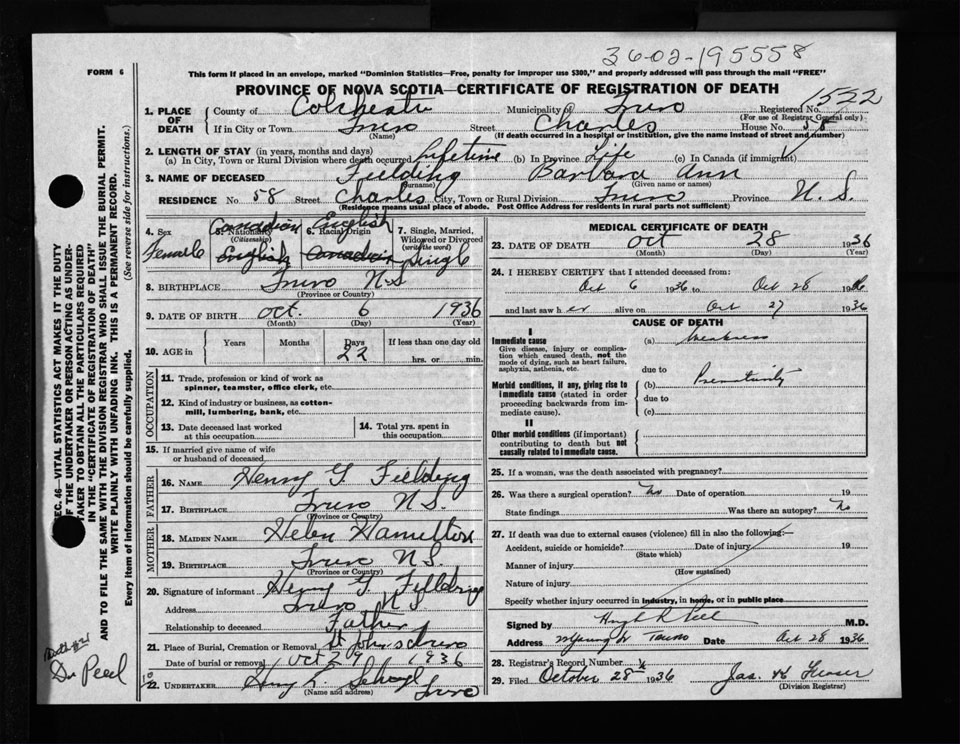 36-02-195558
FORM 6
This form if placed in an envelope, marked "Dominion Statistics—Free, penalty for improper use $300," and properly addressed will pass through the mail "FREE"
PROVINCE OF NOVA SCOTIA—CERTIFICATE OF REGISTRATION OF DEATH
1522
1. PLACE OF DEATH
County of Colchester Municipality of Truro Registered No.
(For use of Registrar General only)
If in City or Town Truro Street Charles House No. 58
(Name) (If death occurred in a hospital or institution, give the name instead of street and number)
2. LENGTH OF STAY (in years, months and days)
(a) In City, Town or Rural Division where death occurred Lifetime (b) In Province Life (c) In Canada (if immigrant)
3. NAME OF DECEASED Fielding Barbara Ann
(Surname) (Given name or names)
RESIDENCE No 58 Street Charles City, Town or Rural Division Truro Province N.S.
(Residence means usual place of abode. Post Office Address for residents in rural parts not sufficient)
4. Sex Female
5. Nationality (Citizenship) Canadian English
6. Racial Origin English Canadian
7. Single, Married, Widowed or Divorced (write the word) Single
8. BIRTHPLACE Truro N.S
(Province or Country)
9. DATE OF BIRTH Oct. 6 1936
(Month) (Day) (Year)
10. AGE in Years Months Days If less than one day old
22 hrs. or min.
OCCUPATION
11. Trade, profession or kind of work as spinner, teamster, office clerk, etc.
12. Kind of industry or business, as cotton-mill, lumbering, bank, etc.
13. Date deceased last worked at this occupation
14. Total yrs. spent in this occupation
15. If married give name of wife or husband of deceased
FATHER
16. NAME Henry G. Fielding
17. BIRTHPLACE Truro N.S.
(Province or Country)
MOTHER
18. MAIDEN NAME Helen Hamilton
19. BIRTHPLACE Truro N.S.
(Province or Country)
20. Signature of informant Henry G. Fielding
Address Truro N.S
Relationship to deceased Father
21. Place of Burial, Cremation or Removal St Johns Truro
Date of burial or removal Oct 29 1936
22. UNDERTAKER Truro
(Name and address)
MEDICAL CERTIFICATE OF DEATH
23. DATE OF DEATH Oct 28 1936
(Month) (Day) (Year)
24. I HEREBY CERTIFY that I attended deceased from:
Oct 6 1936 to Oct 28 1936
and last saw h er alive on Oct 27 1936
CAUSE OF DEATH
I
Immediate cause
Give disease, injury or complication which caused death, not the mode of dying, such as heart failure, asphyxia, asthenia, etc.
(a) Weakness
due to
Morbid conditions, if any, giving rise to immediate cause (stated in order proceeding backwards from immediate cause).
(b) Prematurity
due to
(c)
II
Other morbid conditions (if important) contributing to death but not causally related to immediate cause.
25. If a woman, was the death associated with pregnancy?
26. Was there a surgical operation? No Date of operation 19
State findings Was there an autopsy? No
27. If death was due to external causes (violence) fill in also the following:—
Accident, suicide or homicide? Date of injury 19
(State which)
Manner of injury
(How sustained)
Nature of injury
Specify whether injury occurred in industry, in home, or in public place
Signed by Hugh R Peel M.D.
Address Truro Date Oct 28 1936
28. Registrar's Record Number
29. Filed October 28 1936 Jas. Fraser
(Division Registrar)
SEC. 46—VITAL STATISTICS ACT MAKES IT THE DUTY
OF THE UNDERTAKER OR PERSON ACTING AS UNDERTAKER TO OBTAIN ALL THE PARTICULARS REQUIRED
IN THE "CERTIFICATE OF REGISTRATION OF DEATH"
AND TO FILE THE SAME WITH THE DIVISION REGISTRAR WHO SHALL ISSUE THE BURIAL PERMIT.
WRITE PLAINLY WITH UNFADING INK. THIS IS A PERMANENT RECORD.
Every item of information should be carefully supplied. (See reverse side for instructions.)
Dr Peel